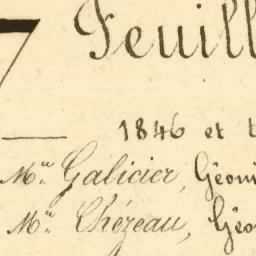 7 Feuill
1846 et t
Mr. Galicier, Géom
Mr. Chézeau, Géo